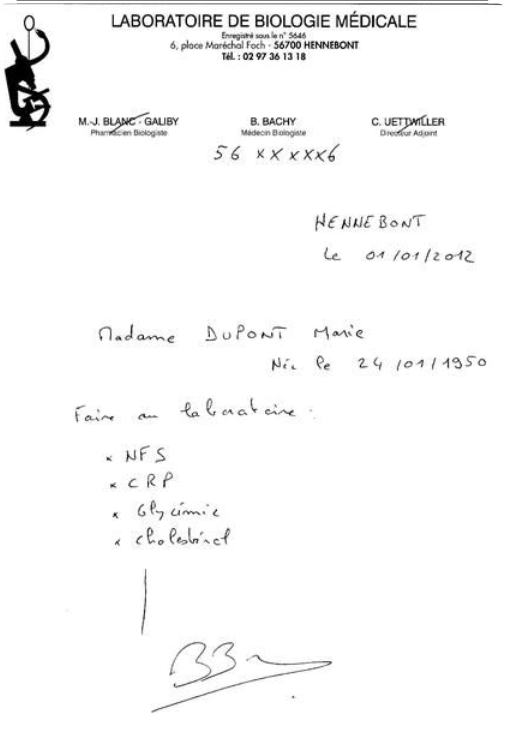 LABORATOIRE DE BIOLOGIE MÉDICALE
Enregistré sous le n° 5646
6, place Maréchal Foch - 56700 HENNEBONT
Tél. : 02 97 36 13 18
M.-J. BLANC - GALIBY B. BACHY C. UETTWILLER
Pharmacien Biologiste Médecin Biologiste Directeur Adjoint
56 xxxxxx6
HENNEBONT
Le 01/01/2012
Madame DUPONT Marie
Née le 24/01/1950
Faire au laboratoire :
x NFS
x CRP
x Glycémie
x cholestérol